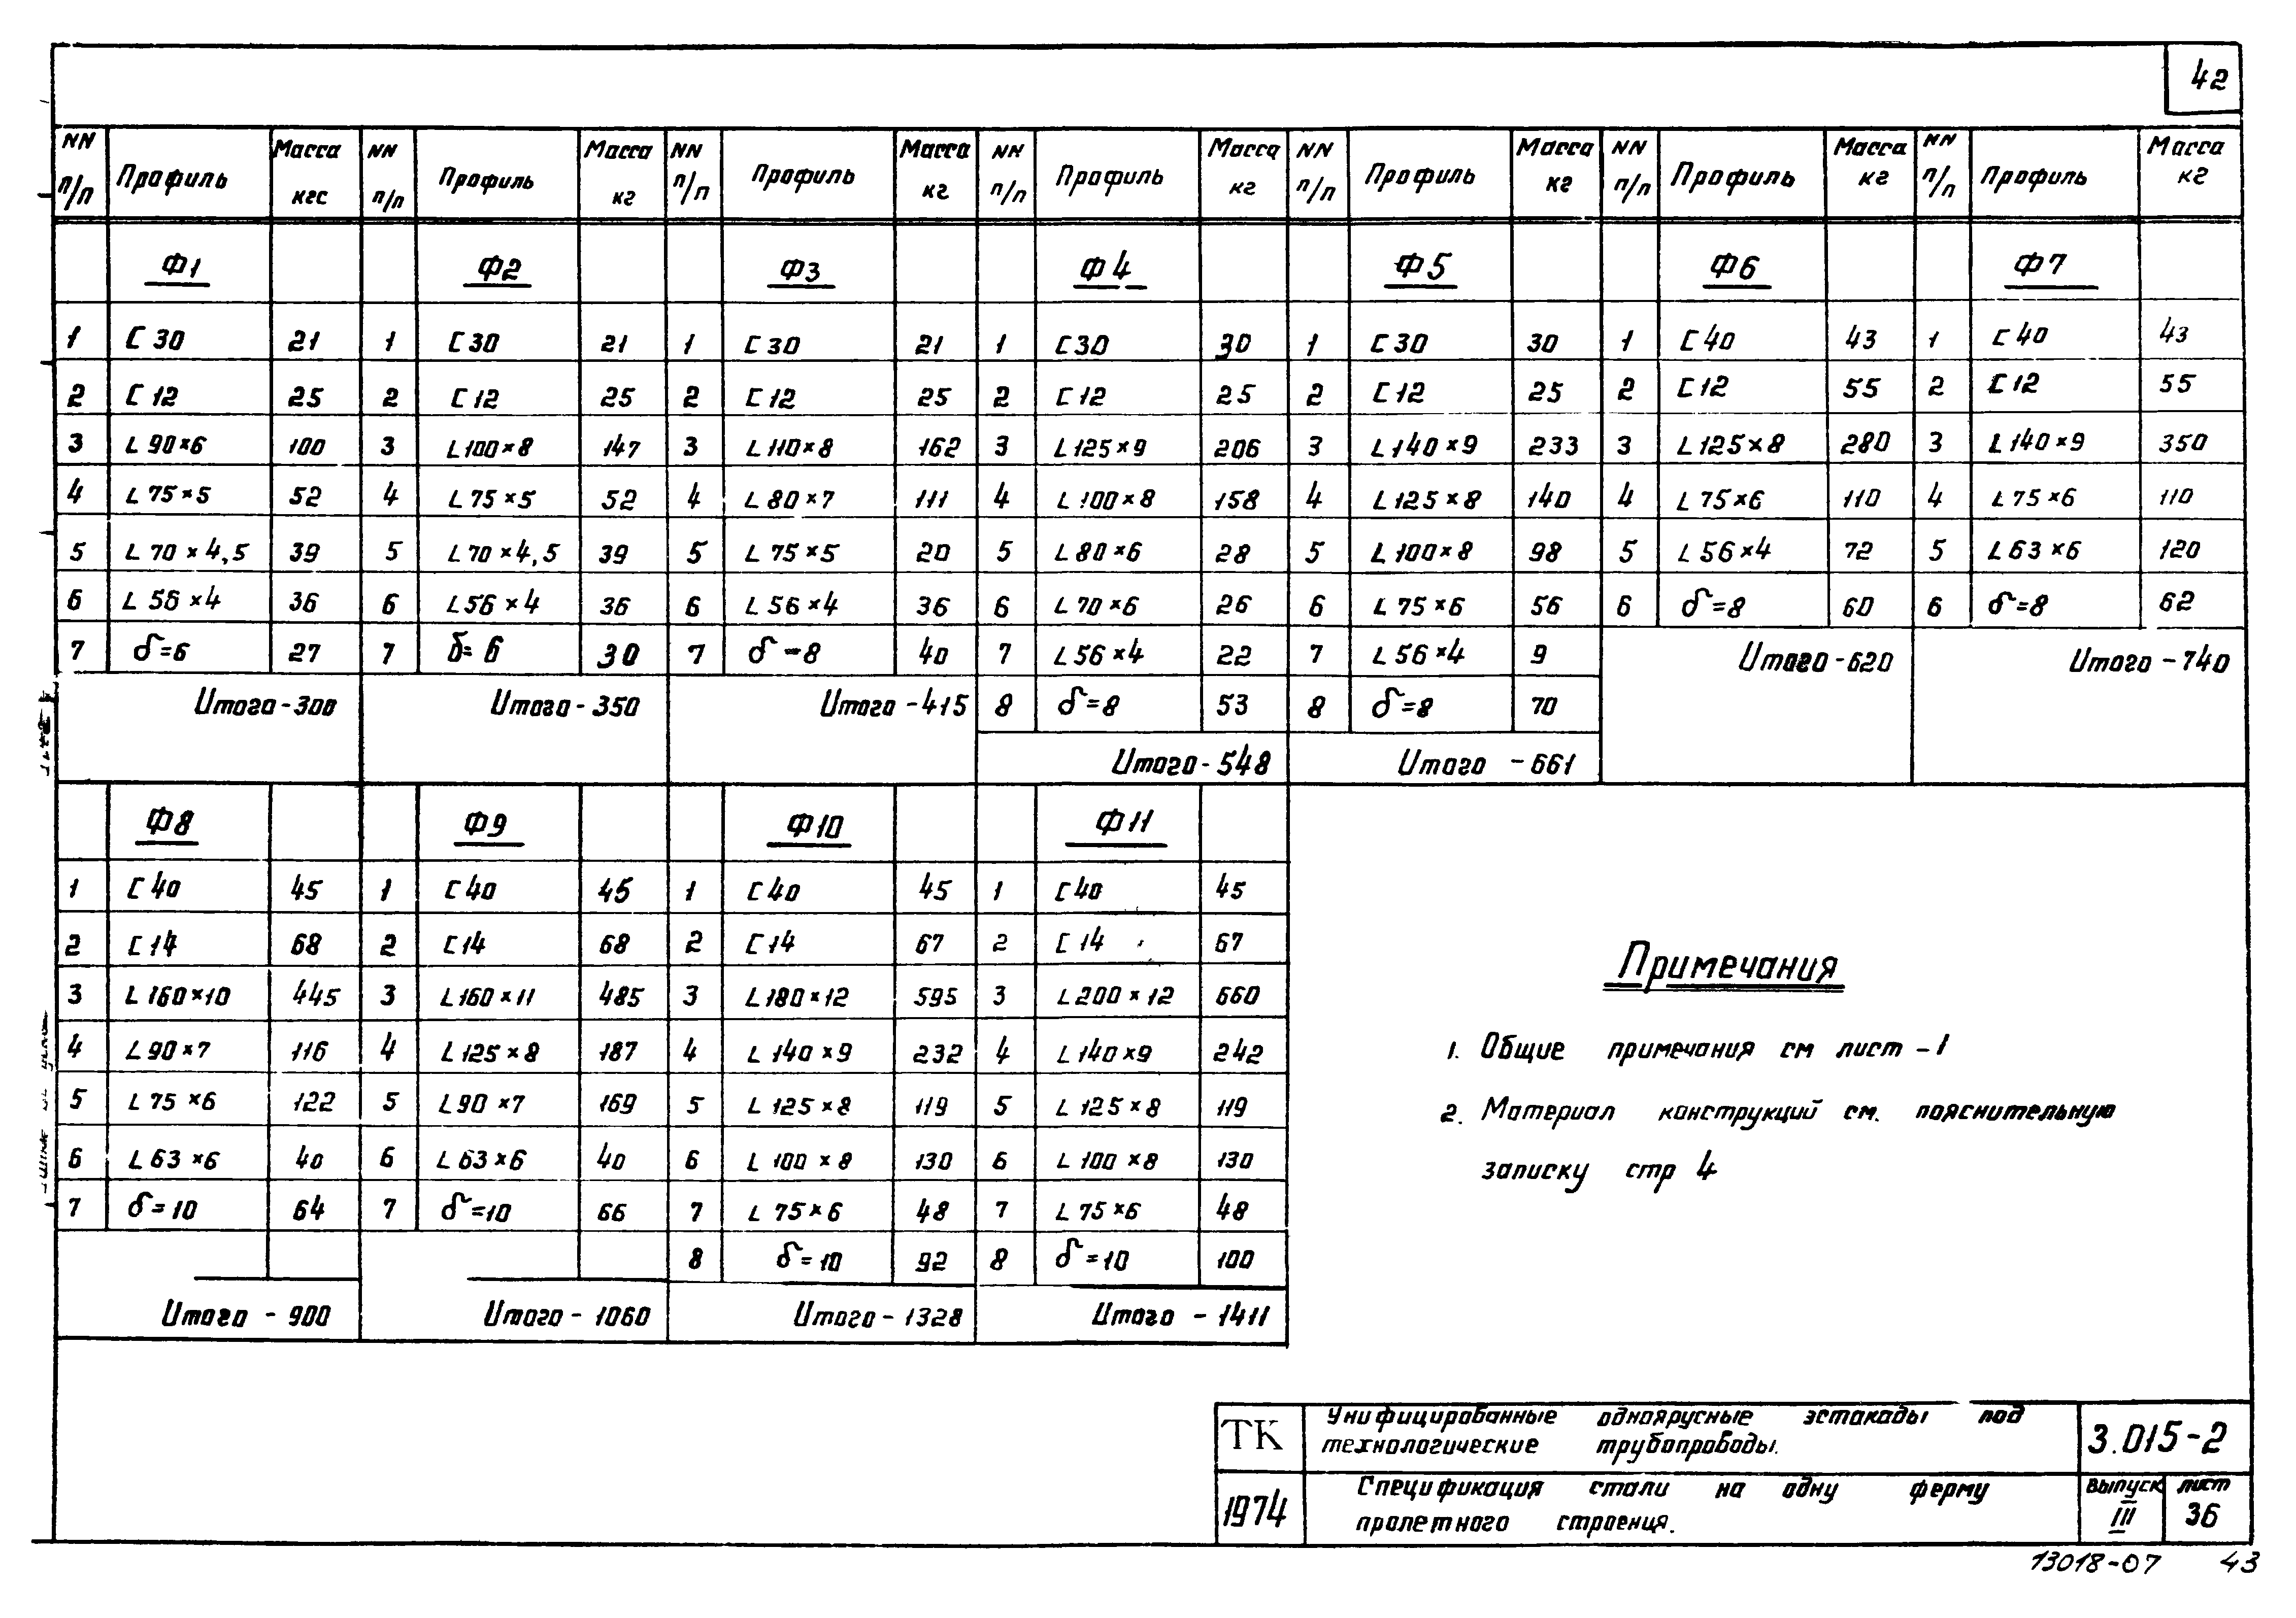 42
NN п/п Профиль Масса кгс NN п/п Профиль Масса кг NN п/п Профиль Масса кг NN п/п Профиль Масса кг NN п/п Профиль Масса кг NN п/п Профиль Масса кг NN п/п Профиль Масса кг
Ф1 Ф2 Ф3 Ф4 Ф5 Ф6 Ф7
1 [ 30 21 1 [ 30 21 1 [ 30 21 1 [ 30 30 1 [ 30 30 1 [ 40 43 1 [ 40 43
2 [ 12 25 2 [ 12 25 2 [ 12 25 2 [ 12 25 2 [ 12 25 2 [ 12 55 2 [ 12 55
3 L 90×6 100 3 L 100×8 147 3 L 110×8 162 3 L 125×9 206 3 L 140×9 233 3 L 125×8 280 3 L 140×9 350
4 L 75×5 52 4 L 75×5 52 4 L 80×7 111 4 L 100×8 158 4 L 125×8 140 4 L 75×6 110 4 L 75×6 110
5 L 70×4,5 39 5 L 70×4,5 39 5 L 75×5 20 5 L 80×6 28 5 L 100×8 98 5 L 56×4 72 5 L 63×6 120
6 L 56×4 36 6 L 56×4 36 6 L 56×4 36 6 L 70×6 26 6 L 75×6 56 6 δ=8 60 6 δ=8 62
7 δ=6 27 7 δ=6 30 7 δ-8 40 7 L 56×4 22 7 L 56×4 9 Итого-620 Итого-740
Итого-300 Итого-350 Итого-415 8 δ=8 53 8 δ=8 70
Итого-548 Итого -661
Ф8 Ф9 Ф10 Ф11
1 [ 40 45 1 [ 40 45 1 [ 40 45 1 [ 40 45
2 [ 14 68 2 [ 14 68 2 [ 14 67 2 [ 14 67
3 L 160×10 445 3 L 160×11 485 3 L 180×12 595 3 L 200×12 660
4 L 90×7 116 4 L 125×8 187 4 L 140×9 232 4 L 140×9 242
5 L 75×6 122 5 L 90×7 169 5 L 125×8 119 5 L 125×8 119
6 L 63×6 40 6 L 63×6 40 6 L 100×8 130 6 L 100×8 130
7 δ=10 64 7 δ=10 66 7 L 75×6 48 7 L 75×6 48
8 δ=10 92 8 δ=10 100
Итого - 900 Итого - 1060 Итого - 1328 Итого - 1411
Примечания
1. Общие примечания см лист -1
2. Материал конструкций см. пояснительную
записку стр 4
ТК Унифицированные одноярусные эстакады под
технологические трубопроводы. 3.015-2
1974 Спецификация стали на одну ферму
пролетного строения. выпуск III лист 36
13018-07 43